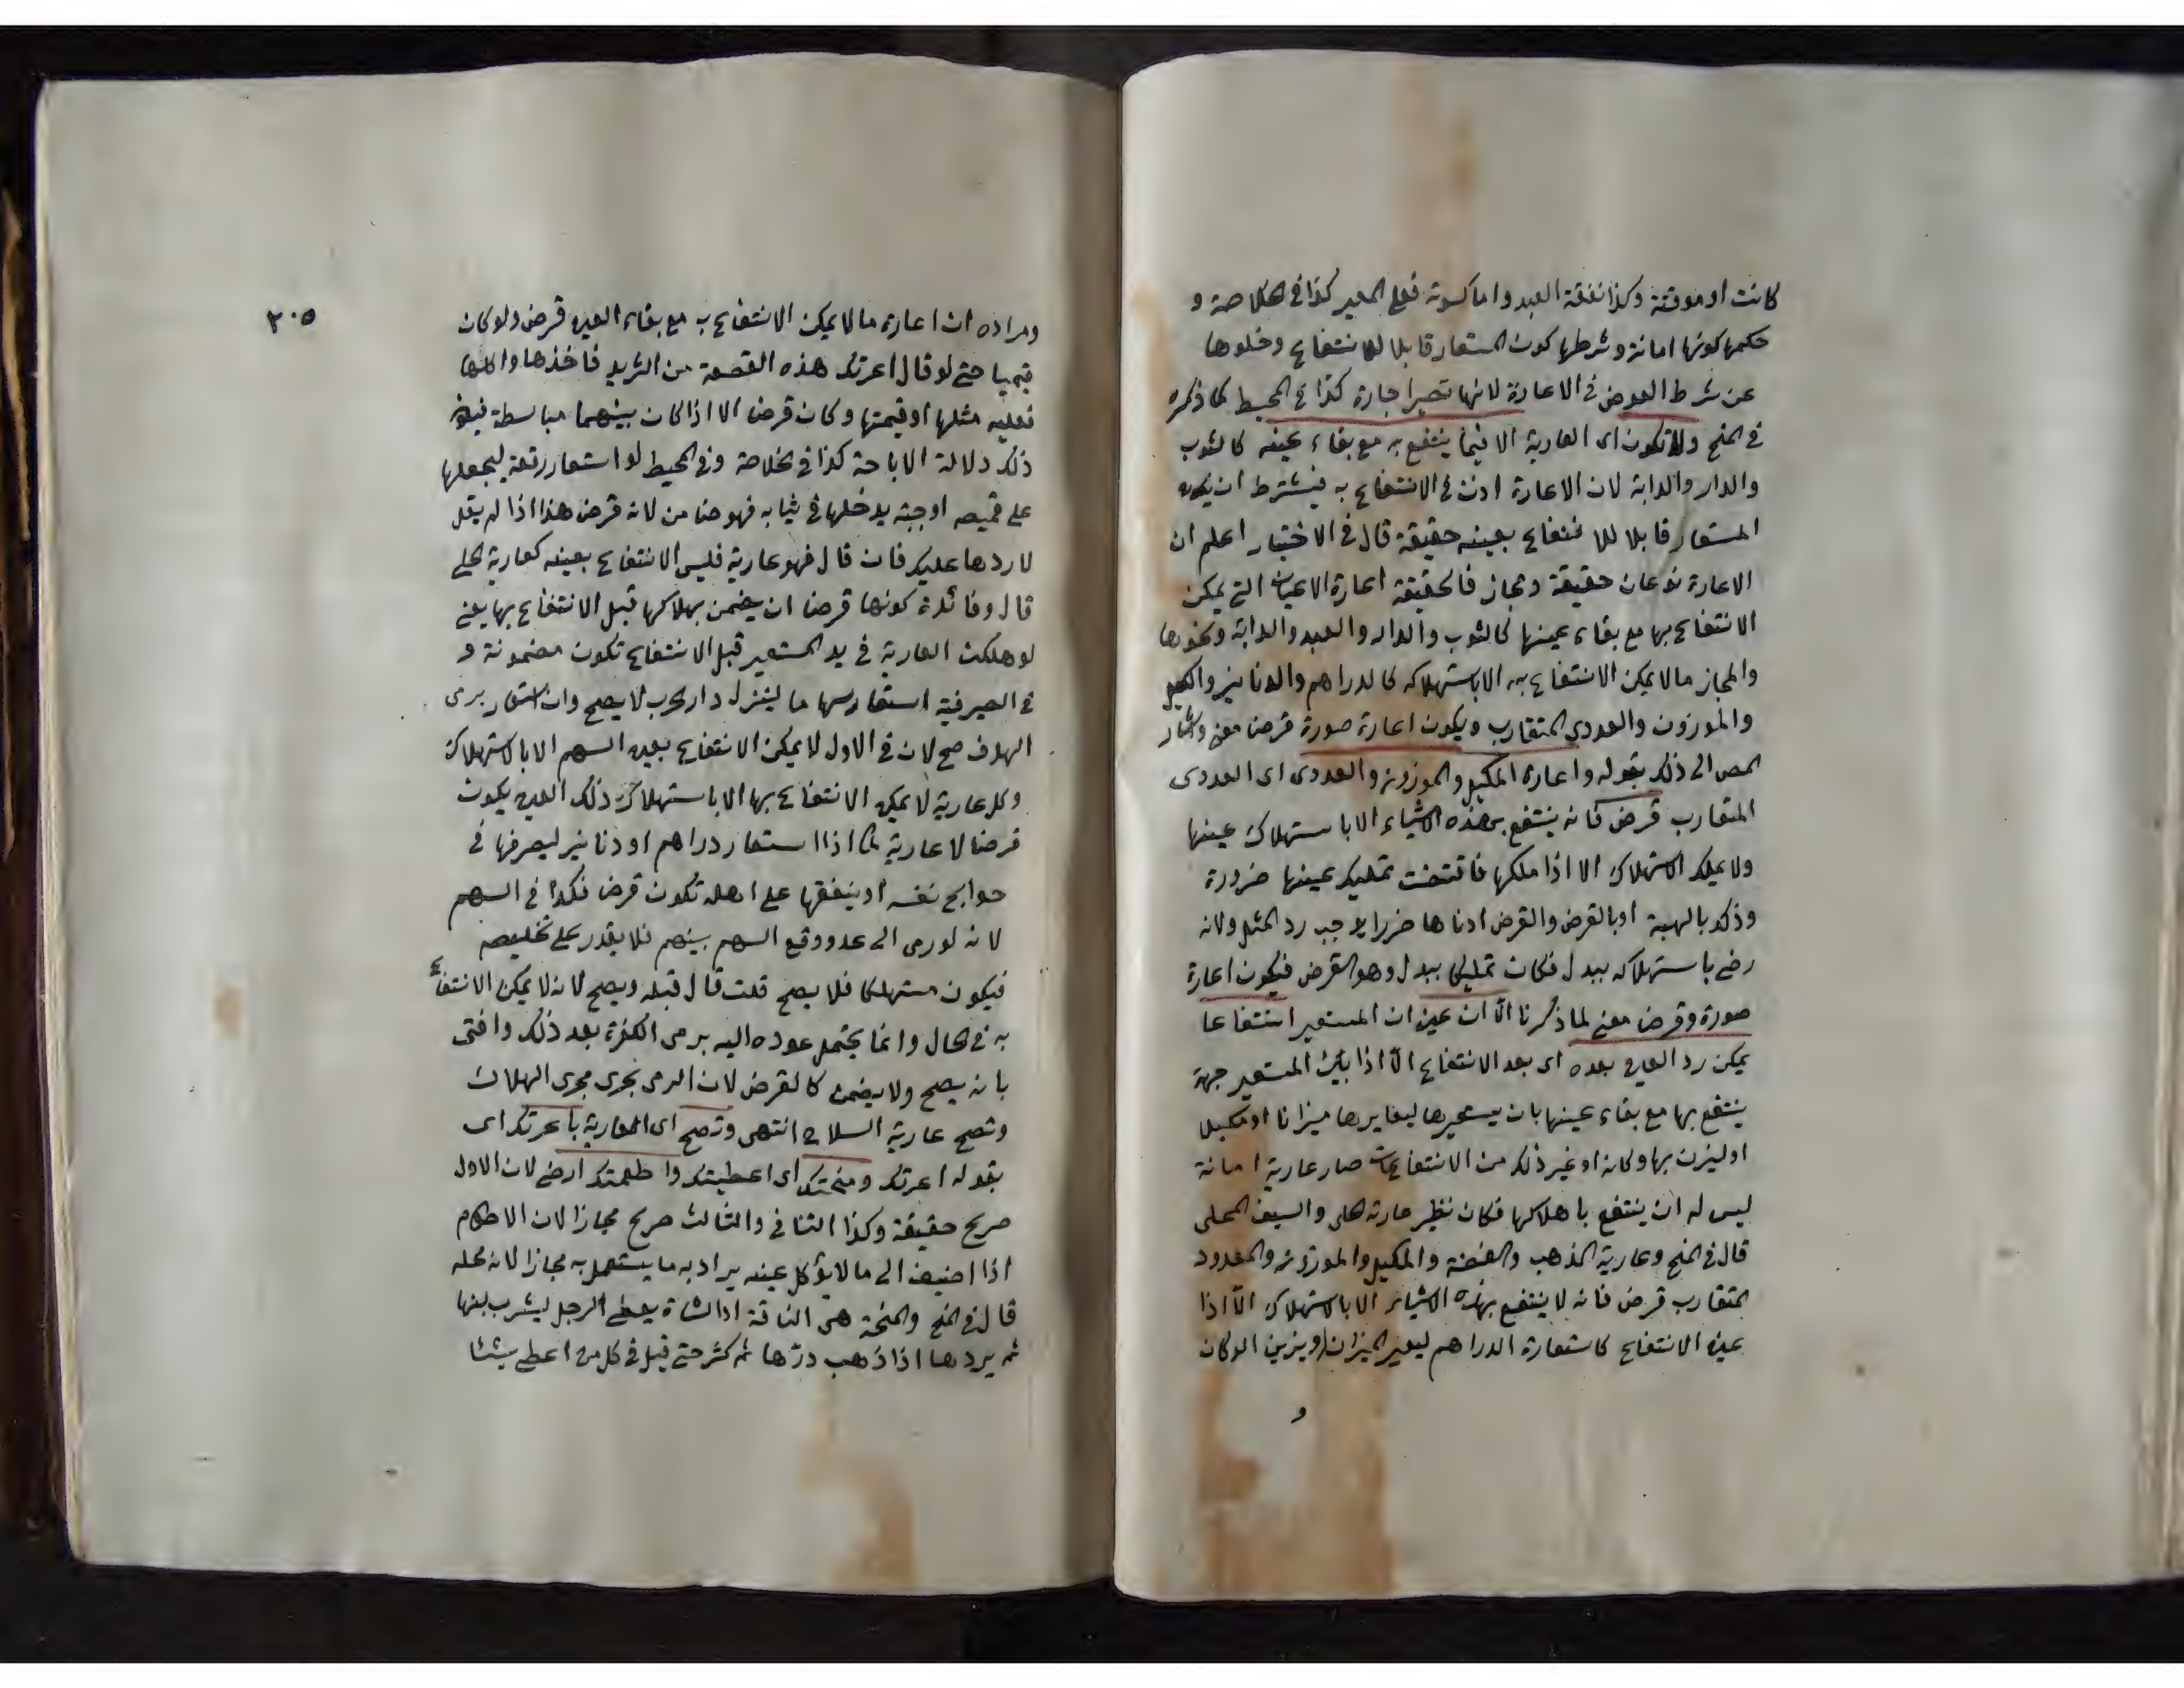 كانت او موقتة وكذا نفقة العبد واما كسوته فعلى المعير كذا في الخلاصة و
حكمها كونها امانة وشرطها كون المستعار قابلا للانتفاع وخلوها
عن شرط العوض في الاعارة لانها تصير اجارة كذا في المحيط كما ذكره
في المنح ولا تكون اى العارية الا فيما ينتفع به مع بقاء عينه كالثوب
والدار والدابة لان الاعارة اذن في الانتفاع به فيشترط ان يكون
المستعار قابلا للانتفاع بعينه حقيقة قال في الاختيار اعلم ان
الاعارة نوعان حقيقة ومجاز فالحقيقة اعارة الاعيان التي يمكن
الانتفاع بها مع بقاء عينها كالثوب والدار والعبد والدابة ونحوها
والمجاز ما لا يمكن الانتفاع به الا باستهلاكه كالدراهم والدنانير والمكيل
والموزون والعددي المتقارب ويكون اعارة صورة قرضا معنى واشار
المص الى ذلك بقوله واعارة المكيل والموزون والعددى اى العددى
المتقارب قرض فانه ينتفع بهذه الاشياء الا باستهلاك عينها
ولا يملك الاستهلاك الا اذا ملكها فاقتضت تمليك عينها ضرورة
وذلك بالهبة او بالقرض والقرض ادناها ضررا يوجب رد المثل ولانه
رضى باستهلاكه ببدل فكان تمليكا ببدل وهو القرض فيكون اعارة
صورة وقرض معنى لما ذكرنا الا ان عين ان المستعير انتفاعا
يمكن رد العين بعده اى بعد الانتفاع الا اذا بين المستعير جهة
ينتفع بها مع بقاء عينها بان يستعيرها ليعاير بها ميزانا او مكيلا
او ليزين بها دكانه او غير ذلك من الانتفاعات صار عارية امانة
ليس له ان ينتفع باهلاكها فكان نظير عارية الحلى والسيف المحلى
قال في المنح وعارية الذهب والفضة والمكيل والموزون والمعدود
المتقارب قرض فانه لا ينتفع بهذه الاشياء الا بالاستهلاك الا اذا
عين الانتفاع كاستعارة الدراهم ليعير الميزان او يزين الدكان
و
٢٠٥
ومراده ان اعارة ما لا يمكن الانتفاع به مع بقاء العين قرض ولو كان
قيميا حتى لو قال اعرتك هذه القصعة من الثريد فاخذها واكلها
فعليه مثلها او قيمتها وكان قرضا الا اذا كان بينهما مباسطة فيكون
ذلك دلالة الاباحة كذا في الخلاصة وفي المحيط لو استعار رقعة ليجعلها
على قميصه او جبته يدخلها في ثيابه فهو ضامن لانه قرض هذا اذا لم يقل
لا ردها عليك فان قال فهو عارية فليس الانتفاع بعينه كعارية الحلي
قال وفائدة كونها قرضا ان يضمن بهلاكها قبل الانتفاع بها يعني
لو هلكت العارية في يد المستعير قبل الانتفاع تكون مضمونة و
في الصيرفية استعار سهما ما لينزل دار الحرب لا يصح وان استعار برمى
الهدف صح لان في الاول لا يمكن الانتفاع بعين السهم الا بالاستهلاك
وكل عارية لا يمكن الانتفاع بها الا باستهلاك ذلك العين يكون
قرضا لا عارية كما اذا استعار دراهم او دنانير ليصرفها في
حوايج نفسه او ينفقها على اهله تكون قرض فكذا في السهم
لانه لو رمى الى عدو وقع السهم بينهم فلا يقدر على تخليصه
فيكون مستهلكا فلا يصح قلت قال قبله ويصح لانه لا يمكن الانتفاع
به في الحال وانما يحتمل عوده اليه برمى الكفرة بعد ذلك وافتى
بانه يصح ولا يضمن كالقرض لان الرمى يجرى مجرى الهلاك
وتصح عارية السلاح انتهى وتصح اى العارية باعرتك اى
بقوله اعرتك ومنحتك اى اعطيتك واطعمتك ارضى لان الاول
صريح حقيقة وكذا الثاني والثالث صريح مجازا لان الاطعام
اذا اضيف الى ما لا يؤكل عينه يراد به ما يستعمل به مجازا لانه محله
قال في المنح والمنحة هى الناقة او الشاة يعطى الرجل ليشرب لبنها
ثم يردها اذا ذهب درها ثم كثر حتى قيل في كل من اعطى شيئا